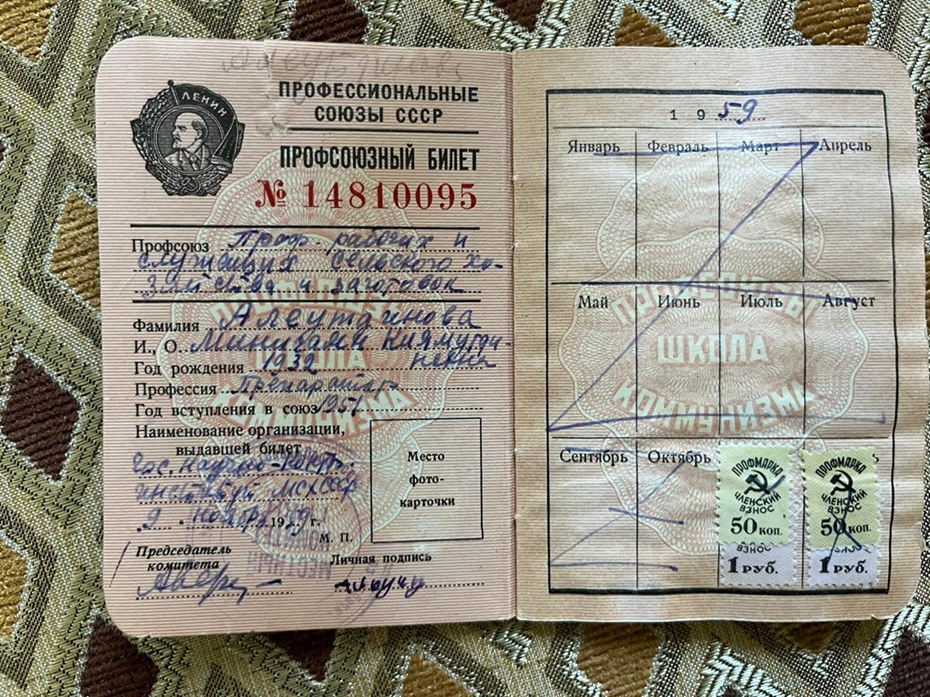 ЛЕНИН
ПРОФЕССИОНАЛЬНЫЕ
СОЮЗЫ СССР
ПРОФСОЮЗНЫЙ БИЛЕТ
№ 14810095
Профсоюз Проф. рабочих и
служащих сельского хо-
зяйства и заготовок
Фамилия Алеутдинова
И., О. Минигаян Киямутди-
новна
Год рождения 1932
Профессия Препаратор
Год вступления в союз 1951
Наименование организации,
выдавшей билет
институт МСХ СССР
9 ноября 1959 г.
М. П.
Место
фото-
карточки
Председатель
комитета
Личная подпись
ШКОЛА
КОММУНИЗМА
1959
Январь Февраль Март Апрель
Май Июнь Июль Август
ШКОЛА
КОММУНИЗМА
Сентябрь Октябрь
ПРОФМАРКА
ЧЛЕНСКИЙ
ВЗНОС
50 КОП.
ВЗНОС
1 РУБ.
ПРОФМАРКА
ЧЛЕНСКИЙ
ВЗНОС
50 КОП.
1 РУБ.